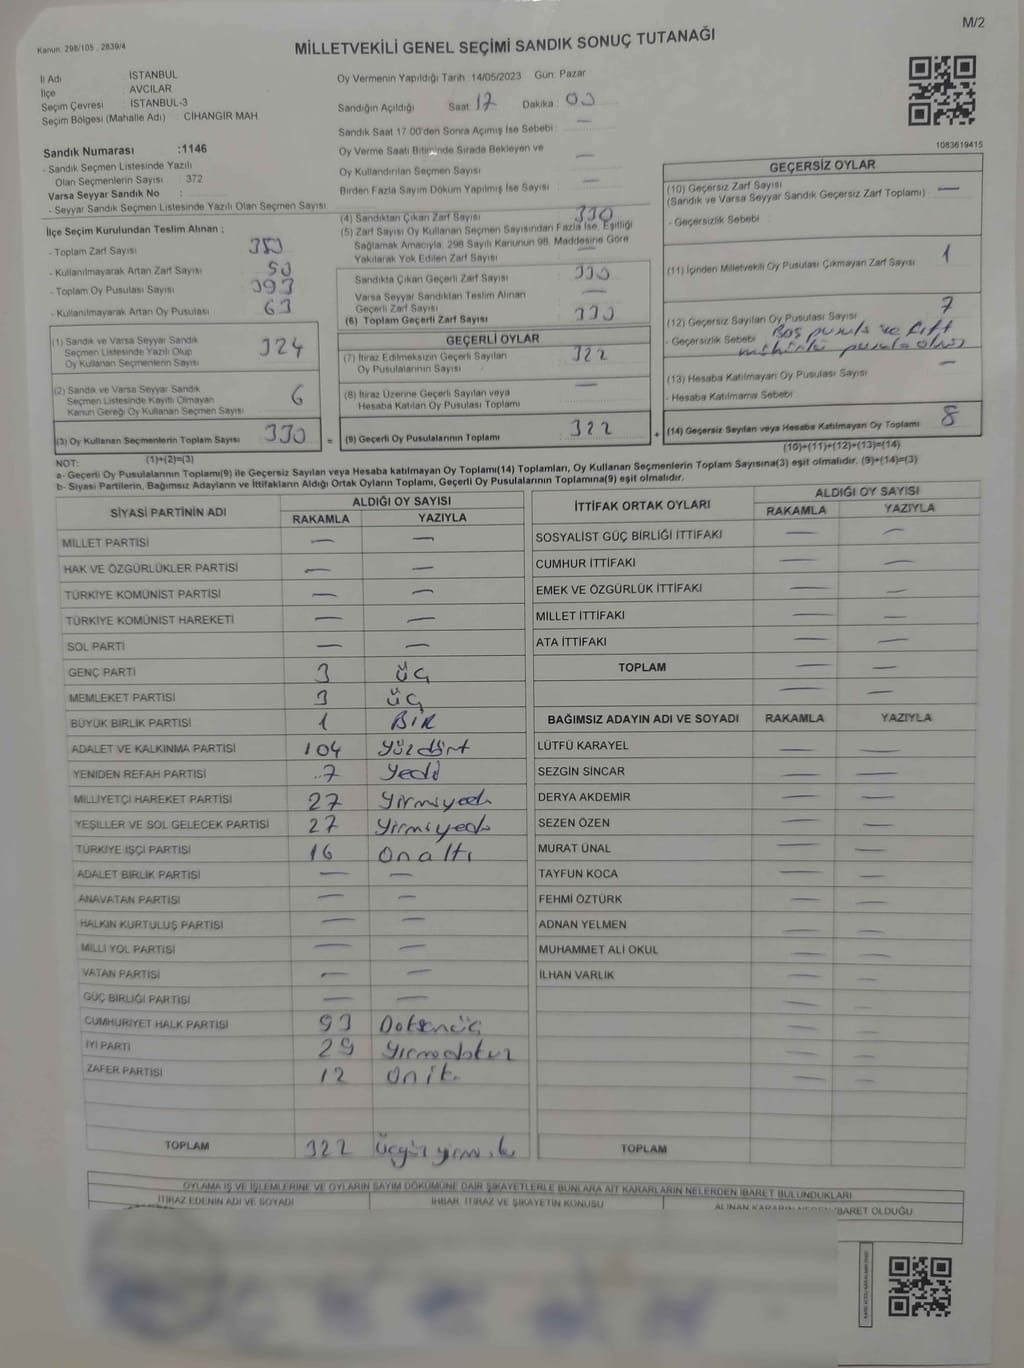 M/2
Kanun. 298/105 , 2839/4
MİLLETVEKİLİ GENEL SEÇİMİ SANDIK SONUÇ TUTANAĞI
İl Adı : İSTANBUL
İlçe : AVCILAR
Seçim Çevresi : İSTANBUL-3
Seçim Bölgesi (Mahalle Adı) : CİHANGİR MAH
Oy Vermenin Yapıldığı Tarih : 14/05/2023 Gün: Pazar
Sandığın Açıldığı Saat 17 Dakika : 00
Sandık Saat 17.00'den Sonra Açımış İse Sebebi : —
Oy Verme Saati Bitiminde Sırada Bekleyen ve
Oy Kullandırılan Seçmen Sayısı : —
Birden Fazla Sayım Döküm Yapılmış İse Sayısı : —
1083619415
Sandık Numarası :1146
- Sandık Seçmen Listesinde Yazılı
Olan Seçmenlerin Sayısı : 372
Varsa Seyyar Sandık No :
- Seyyar Sandık Seçmen Listesinde Yazılı Olan Seçmen Sayısı:
İlçe Seçim Kurulundan Teslim Alınan :
- Toplam Zarf Sayısı
- Kullanılmayarak Artan Zarf Sayısı 50
- Toplam Oy Pusulası Sayısı 393
- Kullanılmayarak Artan Oy Pusulası 63
(1) Sandık ve Varsa Seyyar Sandık
Seçmen Listesinde Yazılı Olup
Oy Kullanan Seçmenlerin Sayısı 324
(2) Sandık ve Varsa Seyyar Sandık
Seçmen Listesinde Kayıtlı Olmayan
Kanun Gereği Oy Kullanan Seçmen Sayısı 6
(3) Oy Kullanan Seçmenlerin Toplam Sayısı 330
(4) Sandıktan Çıkan Zarf Sayısı 330
(5) Zarf Sayısı Oy Kullanan Seçmen Sayısından Fazla İse, Eşitliği
Sağlamak Amacıyla, 298 Sayılı Kanunun 98. Maddesine Göre
Yakılarak Yok Edilen Zarf Sayısı
Sandıkta Çıkan Geçerli Zarf Sayısı 330
Varsa Seyyar Sandıktan Teslim Alınan
Geçerli Zarf Sayısı —
(6) Toplam Geçerli Zarf Sayısı 330
GEÇERLİ OYLAR
(7) İtiraz Edilmeksizin Geçerli Sayılan
Oy Pusulalarının Sayısı 322
(8) İtiraz Üzerine Geçerli Sayılan veya
Hesaba Katılan Oy Pusulası Toplamı —
= (9) Geçerli Oy Pusulalarının Toplamı 322
GEÇERSİZ OYLAR
(10) Geçersiz Zarf Sayısı
(Sandık ve Varsa Seyyar Sandık Geçersiz Zarf Toplamı) —
- Geçersizlik Sebebi :
(11) İçinden Milletvekili Oy Pusulası Çıkmayan Zarf Sayısı 1
(12) Geçersiz Sayılan Oy Pusulası Sayısı 7
- Geçersizlik Sebebi : Boş pusula ve çift
mühürlü pusula
(13) Hesaba Katılmayan Oy Pusulası Sayısı —
- Hesaba Katılmama Sebebi :
+ (14) Geçersiz Sayılan veya Hesaba Katılmayan Oy Toplamı 8
(1)+(2)=(3)
(10)+(11)+(12)+(13)=(14)
NOT:
a- Geçerli Oy Pusulalarının Toplamı(9) ile Geçersiz Sayılan veya Hesaba katılmayan Oy Toplamı(14) Toplamları, Oy Kullanan Seçmenlerin Toplam Sayısına(3) eşit olmalıdır. (9)+(14)=(3)
b- Siyasi Partilerin, Bağımsız Adayların ve İttifakların Aldığı Ortak Oyların Toplamı, Geçerli Oy Pusulalarının Toplamına(9) eşit olmalıdır.
SİYASİ PARTİNİN ADI ALDIĞI OY SAYISI
RAKAMLA YAZIYLA
MİLLET PARTİSİ — —
HAK VE ÖZGÜRLÜKLER PARTİSİ — —
TÜRKİYE KOMÜNİST PARTİSİ — —
TÜRKİYE KOMÜNİST HAREKETİ — —
SOL PARTİ — —
GENÇ PARTİ 3 üç
MEMLEKET PARTİSİ 3 üç
BÜYÜK BİRLİK PARTİSİ 1 BİR
ADALET VE KALKINMA PARTİSİ 104 yüzdört
YENİDEN REFAH PARTİSİ 7 yedi
MİLLİYETÇİ HAREKET PARTİSİ 27 yirmiyedi
YEŞİLLER VE SOL GELECEK PARTİSİ 27 yirmiyedi
TÜRKİYE İŞÇİ PARTİSİ 16 onaltı
ADALET BİRLİK PARTİSİ — —
ANAVATAN PARTİSİ — —
HALKIN KURTULUŞ PARTİSİ — —
MİLLİ YOL PARTİSİ — —
VATAN PARTİSİ — —
GÜÇ BİRLİĞİ PARTİSİ — —
CUMHURİYET HALK PARTİSİ 93 Doksanüç
İYİ PARTİ 29 yirmidokuz
ZAFER PARTİSİ 12 oniki
TOPLAM 322 üçyüzyirmiiki
İTTİFAK ORTAK OYLARI ALDIĞI OY SAYISI
RAKAMLA YAZIYLA
SOSYALİST GÜÇ BİRLİĞİ İTTİFAKI — —
CUMHUR İTTİFAKI — —
EMEK VE ÖZGÜRLÜK İTTİFAKI — —
MİLLET İTTİFAKI — —
ATA İTTİFAKI — —
TOPLAM — —
— —
BAĞIMSIZ ADAYIN ADI VE SOYADI RAKAMLA YAZIYLA
LÜTFÜ KARAYEL — —
SEZGİN SİNCAR — —
DERYA AKDEMİR — —
SEZEN ÖZEN — —
MURAT ÜNAL — —
TAYFUN KOCA — —
FEHMİ ÖZTÜRK — —
ADNAN YELMEN — —
MUHAMMET ALİ OKUL — —
İLHAN VARLIK — —
— —
— —
— —
— —
TOPLAM
OYLAMA İŞ VE İŞLEMLERİNE VE OYLARIN SAYIM DÖKÜMÜNE DAİR ŞİKAYETLERLE BUNLARA AİT KARARLARIN NELERDEN İBARET BULUNDUKLARI
İTİRAZ EDENİN ADI VE SOYADI İHBAR, İTİRAZ VE ŞİKAYETİN KONUSU ALINAN KARARIN NEDEN İBARET OLDUĞU